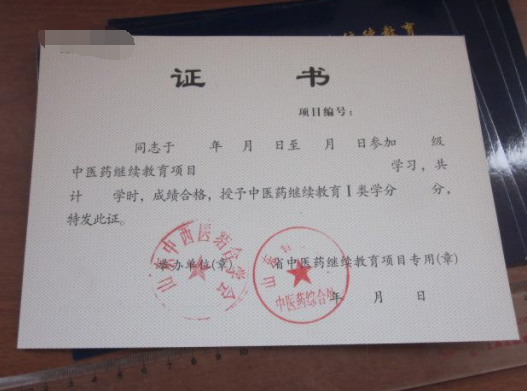 继续教育
证 书
项目编号：
同志于 年 月 日至 月 日参加 级
中医药继续教育项目 学习，共
计 学时，成绩合格，授予中医药继续教育Ⅰ类学分 分，
特发此证。
山东中西医药合学会
举办单位(章) 省中医药继续教育项目专用(章)
山东
中医药综合处
年 月 日